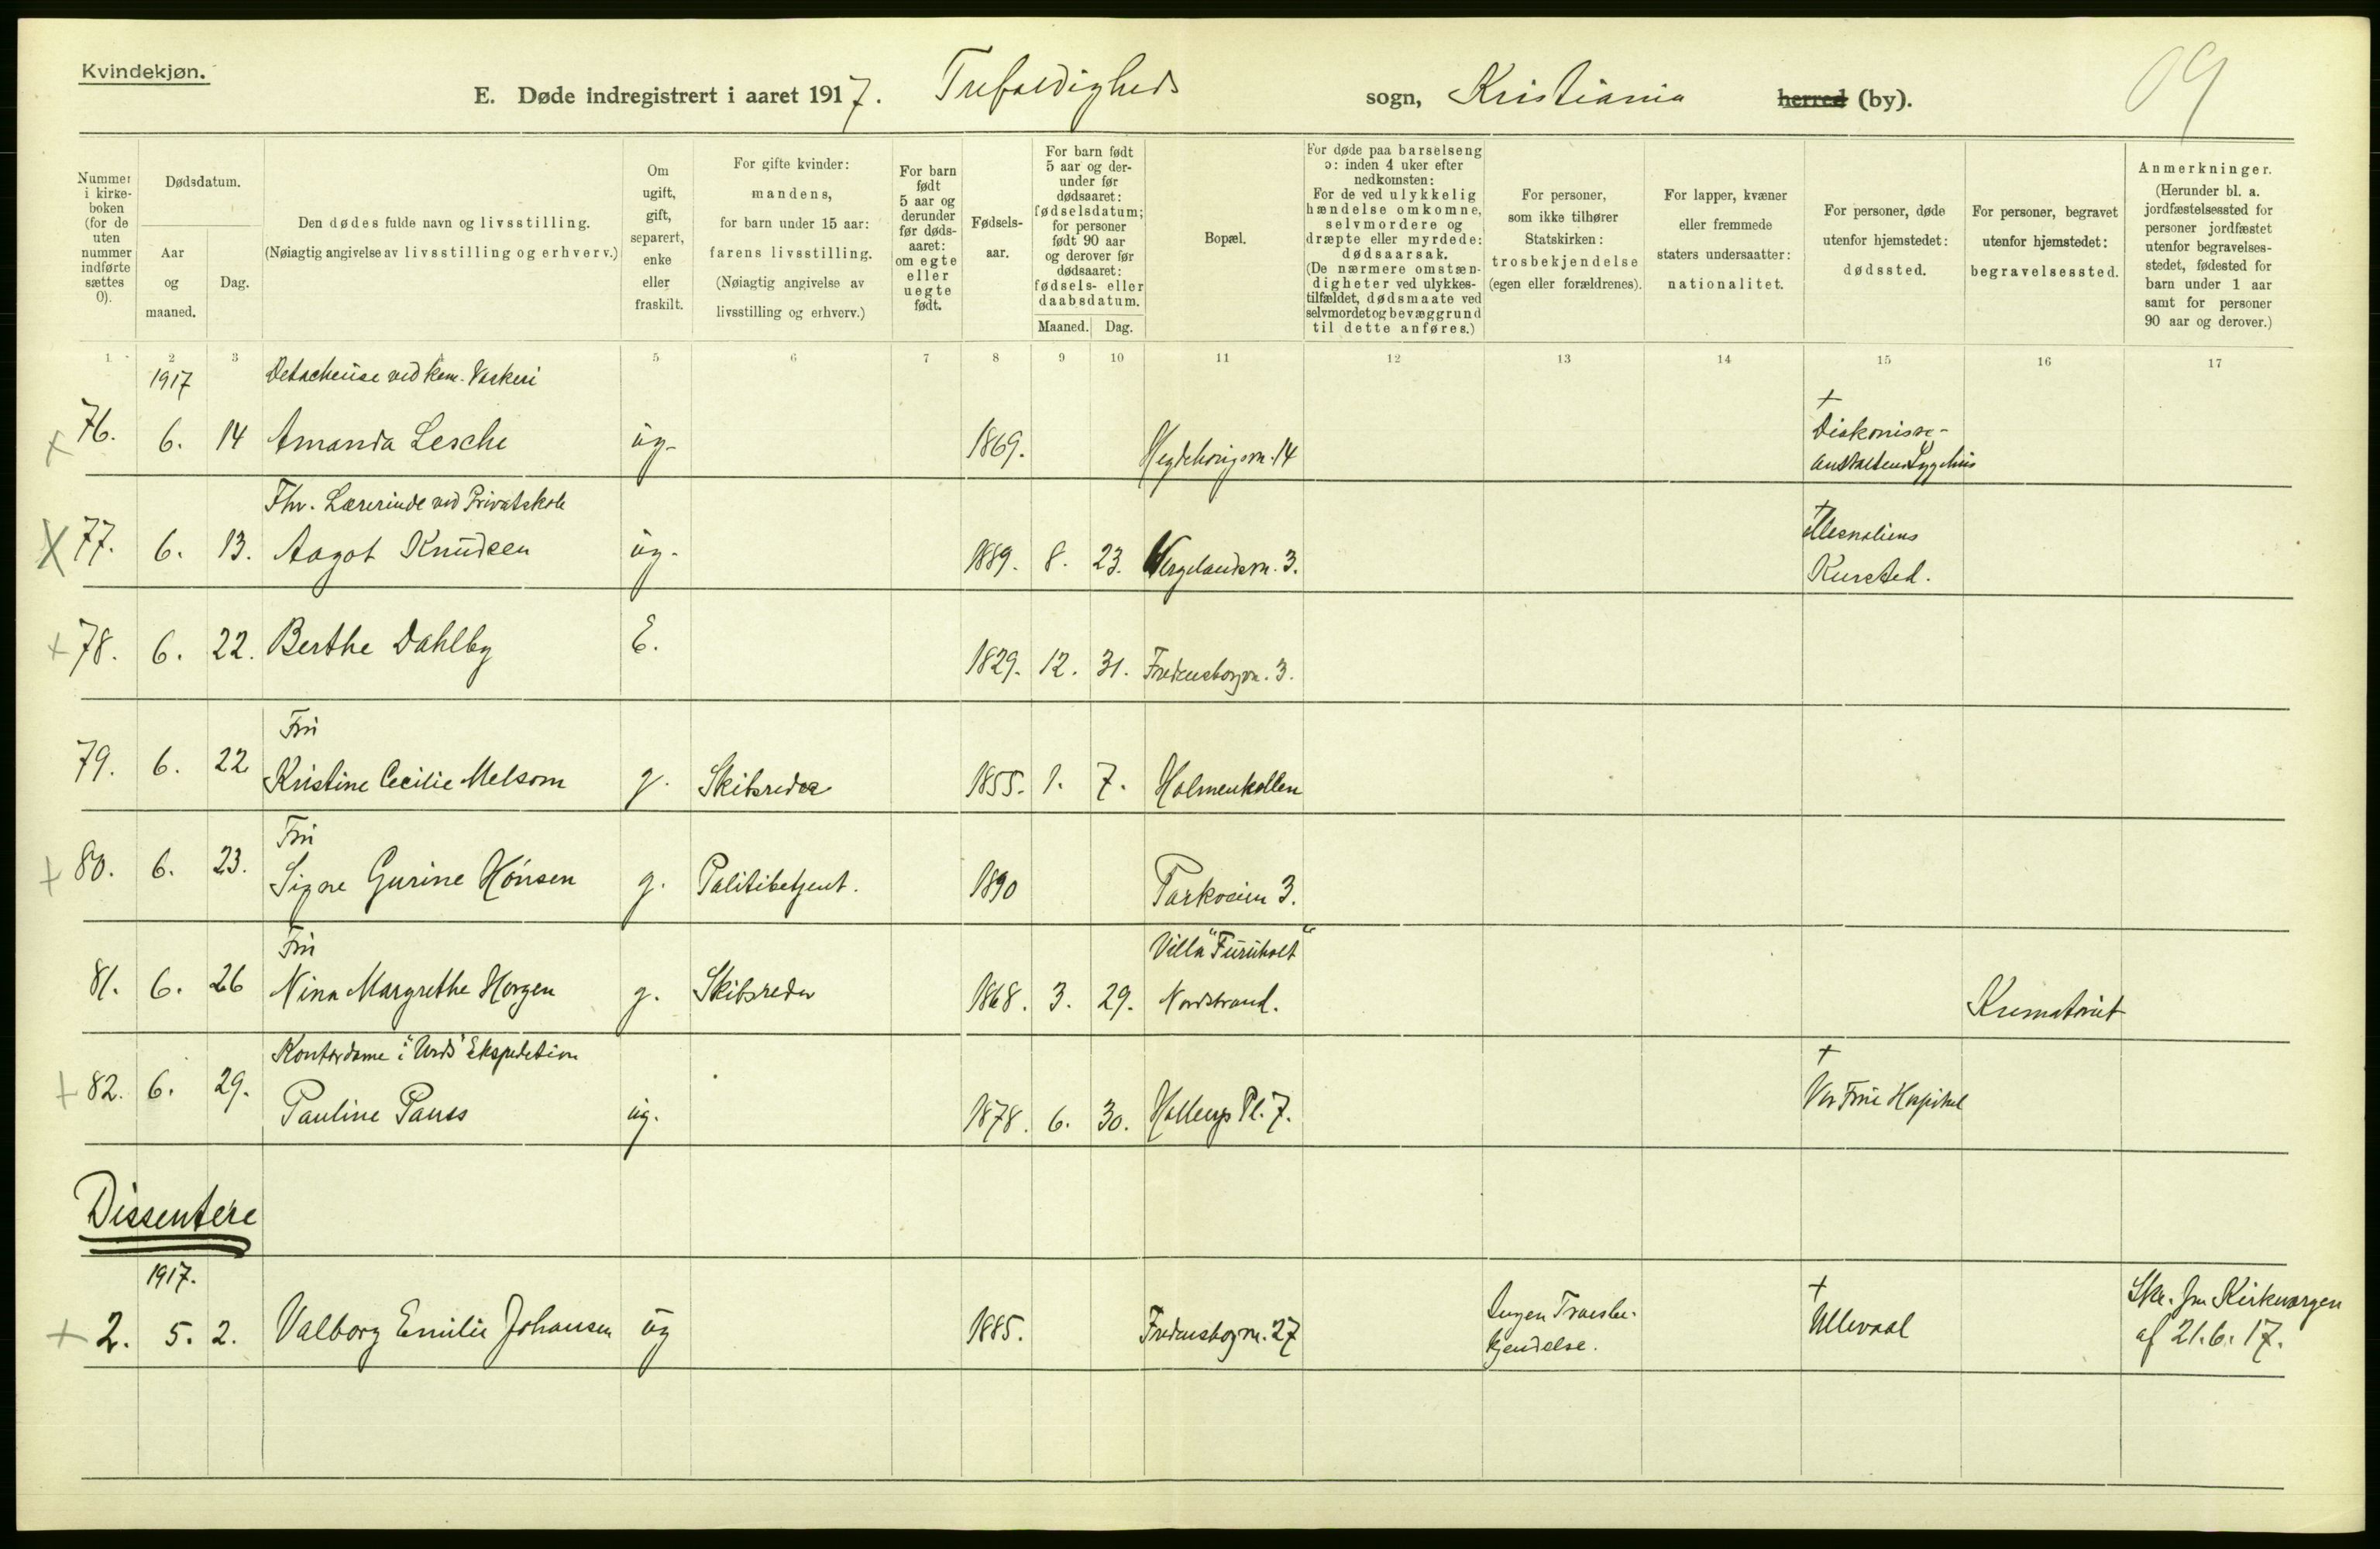 Kvindekjøn.
E. Døde indregistrert i aaret 1917. Trefoldigheds sogn, Kristiania herred (by).
09
Nummer i kirke-boken (for de uten nummer indførte sættes 0).
Dødsdatum.
Aar og maaned.
Dag.
Den dødes fulde navn og livsstilling.
(Nøiagtig angivelse av livsstilling og erhverv.)
Om ugift, gift, separert, enke eller fraskilt.
For gifte kvinder: mandens, for barn under 15 aar: farens livsstilling. (Nøiagtig angivelse av livsstilling og erhverv.)
For barn født 5 aar og derunder før døds-aaret: om egte eller uegte født.
Fødsels-aar.
For barn født 5 aar og der-under før dødsaaret: fødselsdatum; for personer født 90 aar og derover før dødsaaret: fødsels- eller daabsdatum.
Maaned. Dag.
Bopæl.
For døde paa barselseng ɔ: inden 4 uker efter nedkomsten: For de ved ulykkelig hændelse omkomne, selvmordere og dræpte eller myrdede: dødsaarsak. (De nærmere omstæn-digheter ved ulykkes-tilfældet, dødsmaate ved selvmordet og bevæggrund til dette anføres.)
For personer, som ikke tilhører Statskirken: trosbekjendelse (egen eller forældrenes).
For lapper, kvæner eller fremmede staters undersaatter: nationalitet.
For personer, døde utenfor hjemstedet: dødssted.
For personer, begravet utenfor hjemstedet: begravelsessted.
Anmerkninger. (Herunder bl. a. jordfæstelsessted for personer jordfæstet utenfor begravelses-stedet, fødested for barn under 1 aar samt for personer 90 aar og derover.)
1 2 3 5 6 7 8 9 10 11 12 13 14 15 16 17
1917 Detacheuse ved kem. Vaskeri
76. 6. 14 Amanda Lesche ug. 1869. Hegdehaugsvn. 14 + Diakonisse-anstaltens Sygehus
Fhv. Lærerinde ved Privatskole
77. 6. 13. Aagot Knudsen ug. 1889. 8. 23. Wergelandsvn. 3. + Mesnaliens Kursted.
78. 6. 22. Berthe Dahlby E. 1829. 12. 31. Fredensborgvn. 3.
Fru
79. 6. 22 Kristine Cecilie Melsom g. Skibsreder 1855. 1. 7. Holmenkollen
Fru
80. 6. 23. Signe Gurine Hansen g. Politibetjent. 1890 Parkveien 3.
Fru Villa "Furuholt"
81. 6. 26 Nina Margrethe Horgen g. Skibsreder 1868. 3. 29. Nordstrand. Krematoriet
Kontordame i "Urds" Ekspedition
82. 6. 29. Pauline Pauss ug. 1878. 6. 30. Hallings Pl. 7. + Vor Frue Hospital
Dissentere
1917.
2. 5. 2. Valborg Emilie Johansen ug 1885. Fredensborgvn. 27 Ingen Troesbe-kjendelse. + Ullevaal Skr. fra Kirkevergen af 21.6.17.